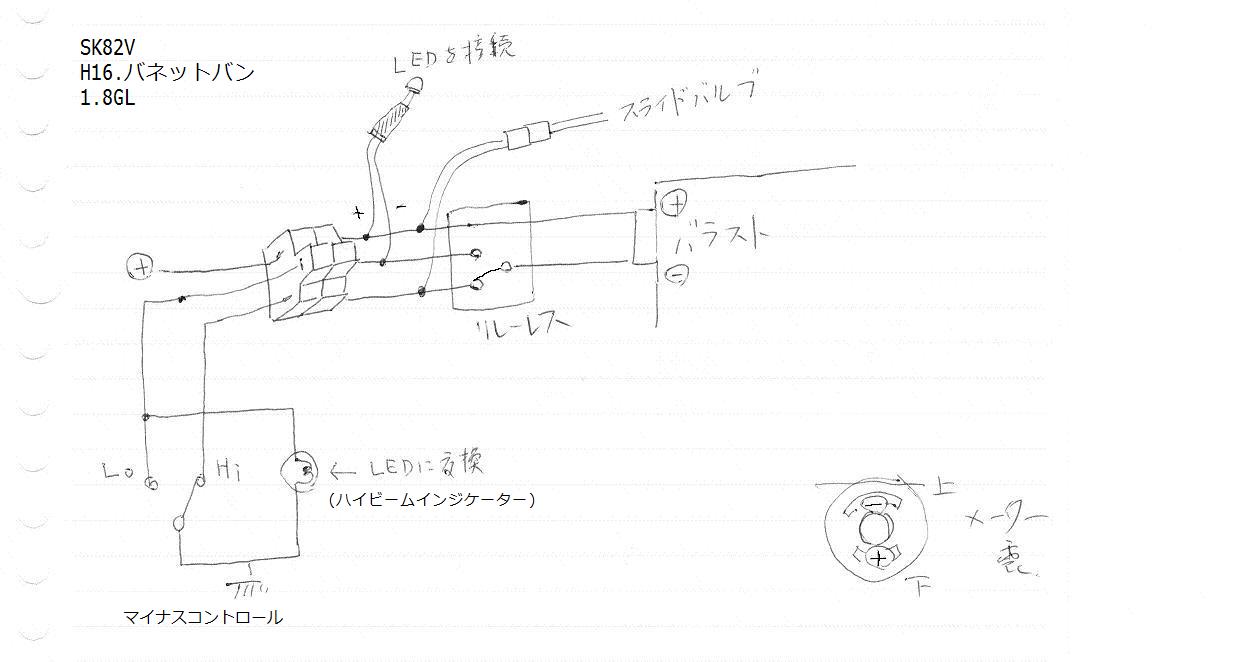 SK82V
H16.バネットバン
1.8GL
LEDを接続
スライドバルブ
+ -
+
+
バラスト
-
リレーレス
Lo
Hi
← LEDに交換
(ハイビームインジケーター)
マイナスコントロール
上
-
メーター
+
下